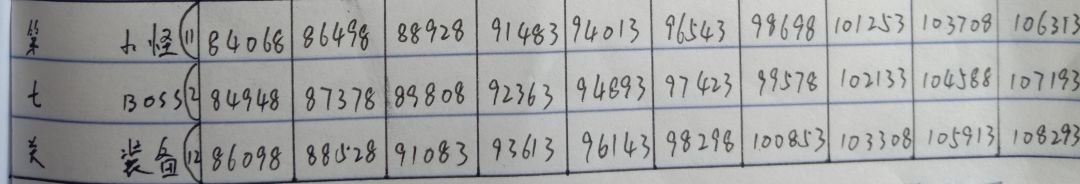 第 小怪(11 84068 86498 88928 91483 94013 96543 98698 101253 103708 106313
七 BOSS(2 84948 87378 89808 92363 94893 97423 99578 102133 104588 107193
关 装备(12 86098 88528 91083 93613 96143 98298 100853 103308 105913 108293